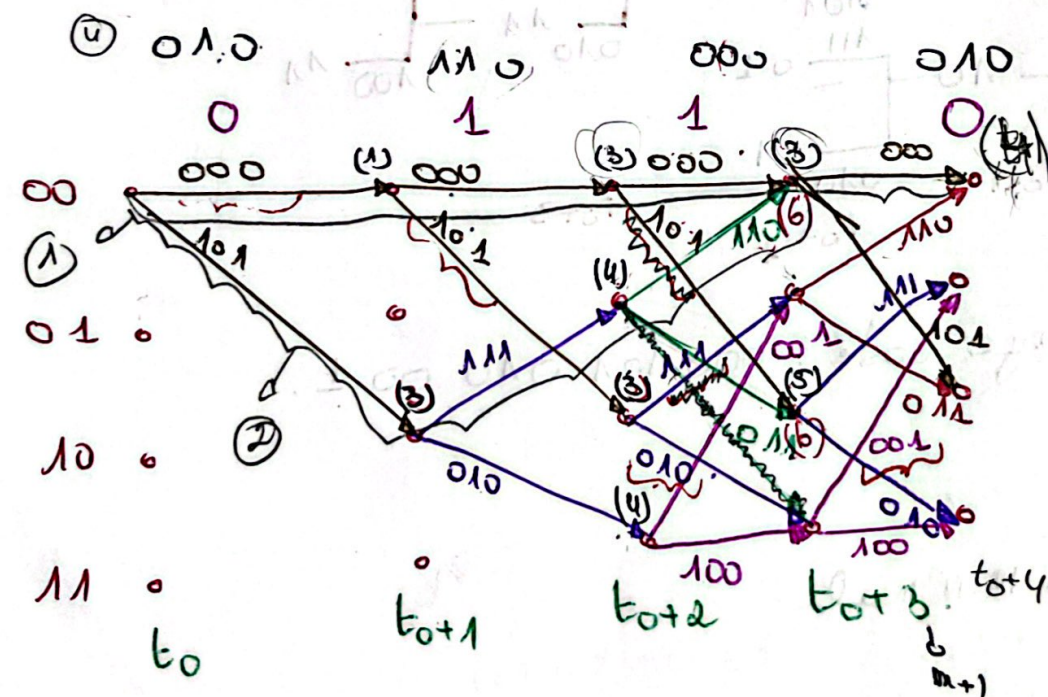 4 010 110 000 010
0 1 1 0
00 000 (1) 000 (3) 000 (7) 000
1 101 101 101 110 (6) 110
(4) 111
01 111 111 001 101
(3) (3) (5) 011
2 011 (6) 001
10 010 010 010
(4)
100 100
11
t0 t0+1 t0+2 t0+3 t0+4
m+1